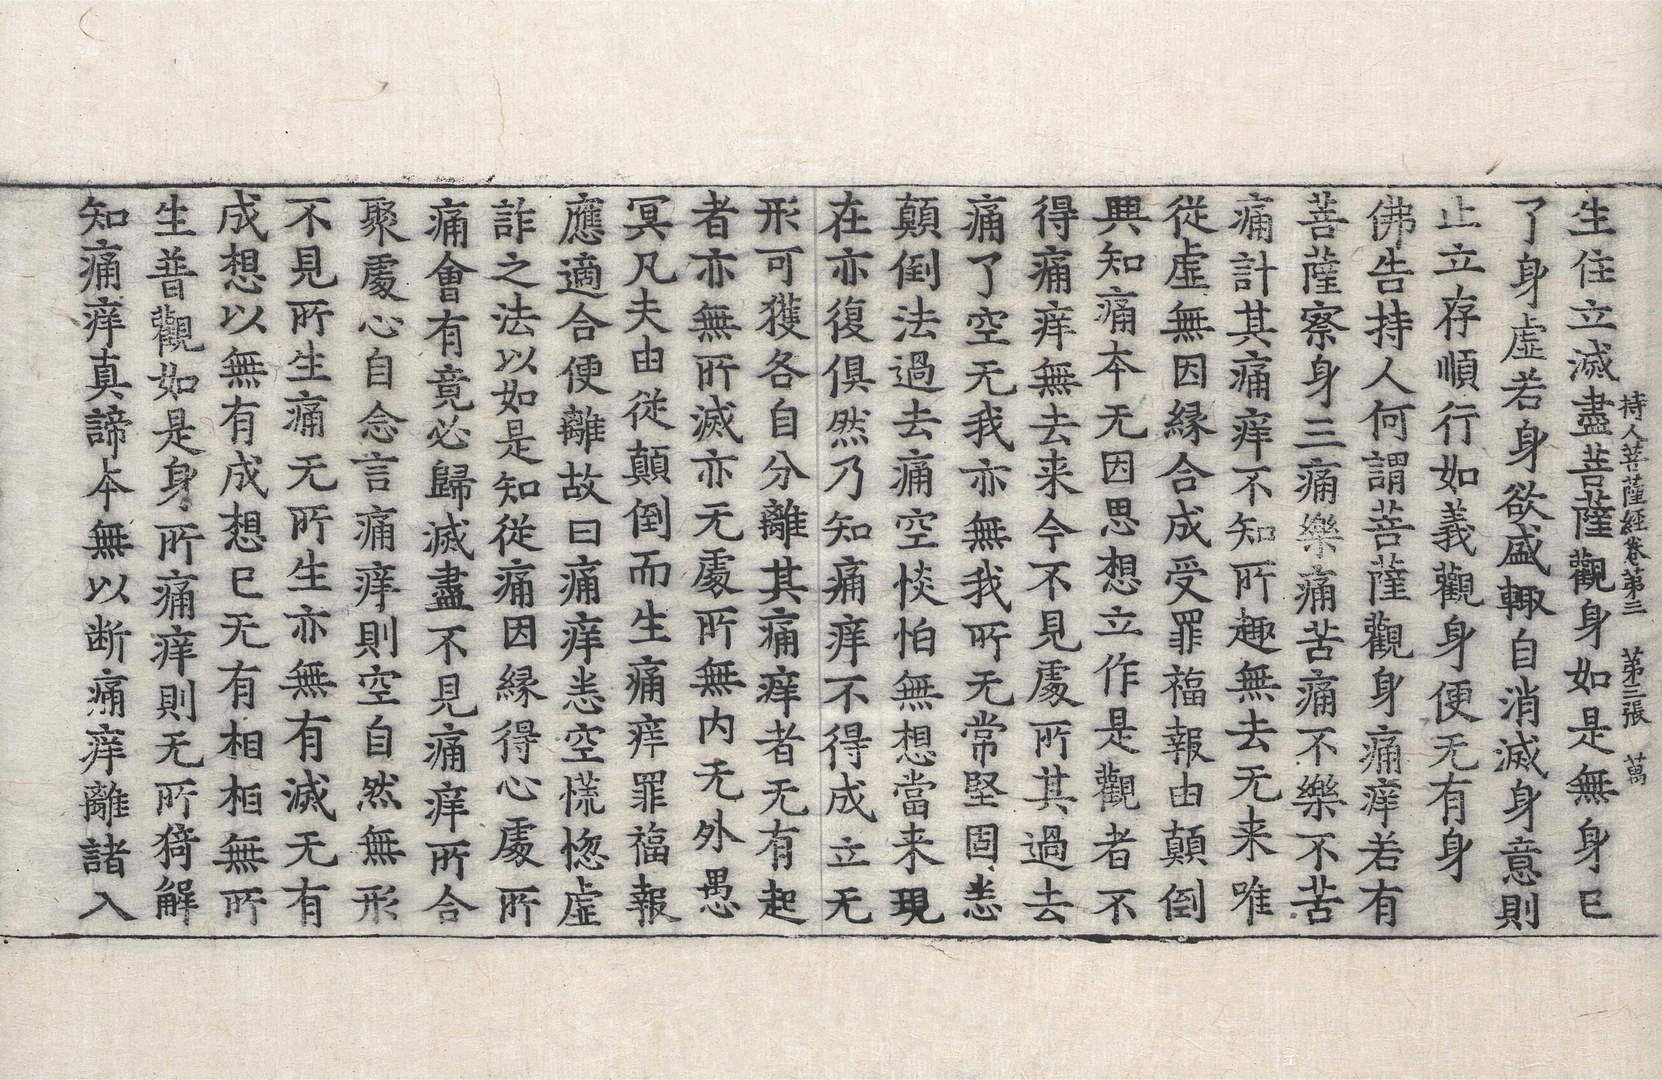 持人菩薩經卷第三　第三張　萬
生住立滅盡菩薩觀身如是無身已
了身虛若身欲盛輙自消滅身意則
止立存順行如義觀身便无有身
佛告持人何謂菩薩觀身痛痒若有
菩薩察身三痛樂痛苦痛不樂不苦
痛計其痛痒不知所趣無去无来唯
從虛無因縁合成受罪福報由顛倒
興知痛本无因思想立作是觀者不
得痛痒無去来今不見處所其過去
痛了空无我亦無我所无常堅固恙
顛倒法過去痛空惔怕無想當来現
在亦復俱然乃知痛痒不得成立无
形可獲各自分離其痛痒者无有起
者亦無所滅亦无處所無内无外愚
冥凡夫由從顛倒而生痛痒罪福報
應適合便離故曰痛痒恙空慌惚虛
詐之法以如是知從痛因縁得心處所
痛會有竟必歸滅盡不見痛痒所合
聚處心自念言痛痒則空自然無形
不見所生痛无所生亦無有滅无有
成想以無有成想已无有相相無所
生普觀如是身所痛痒則无所猗解
知痛痒真諦本無以断痛痒離諸入